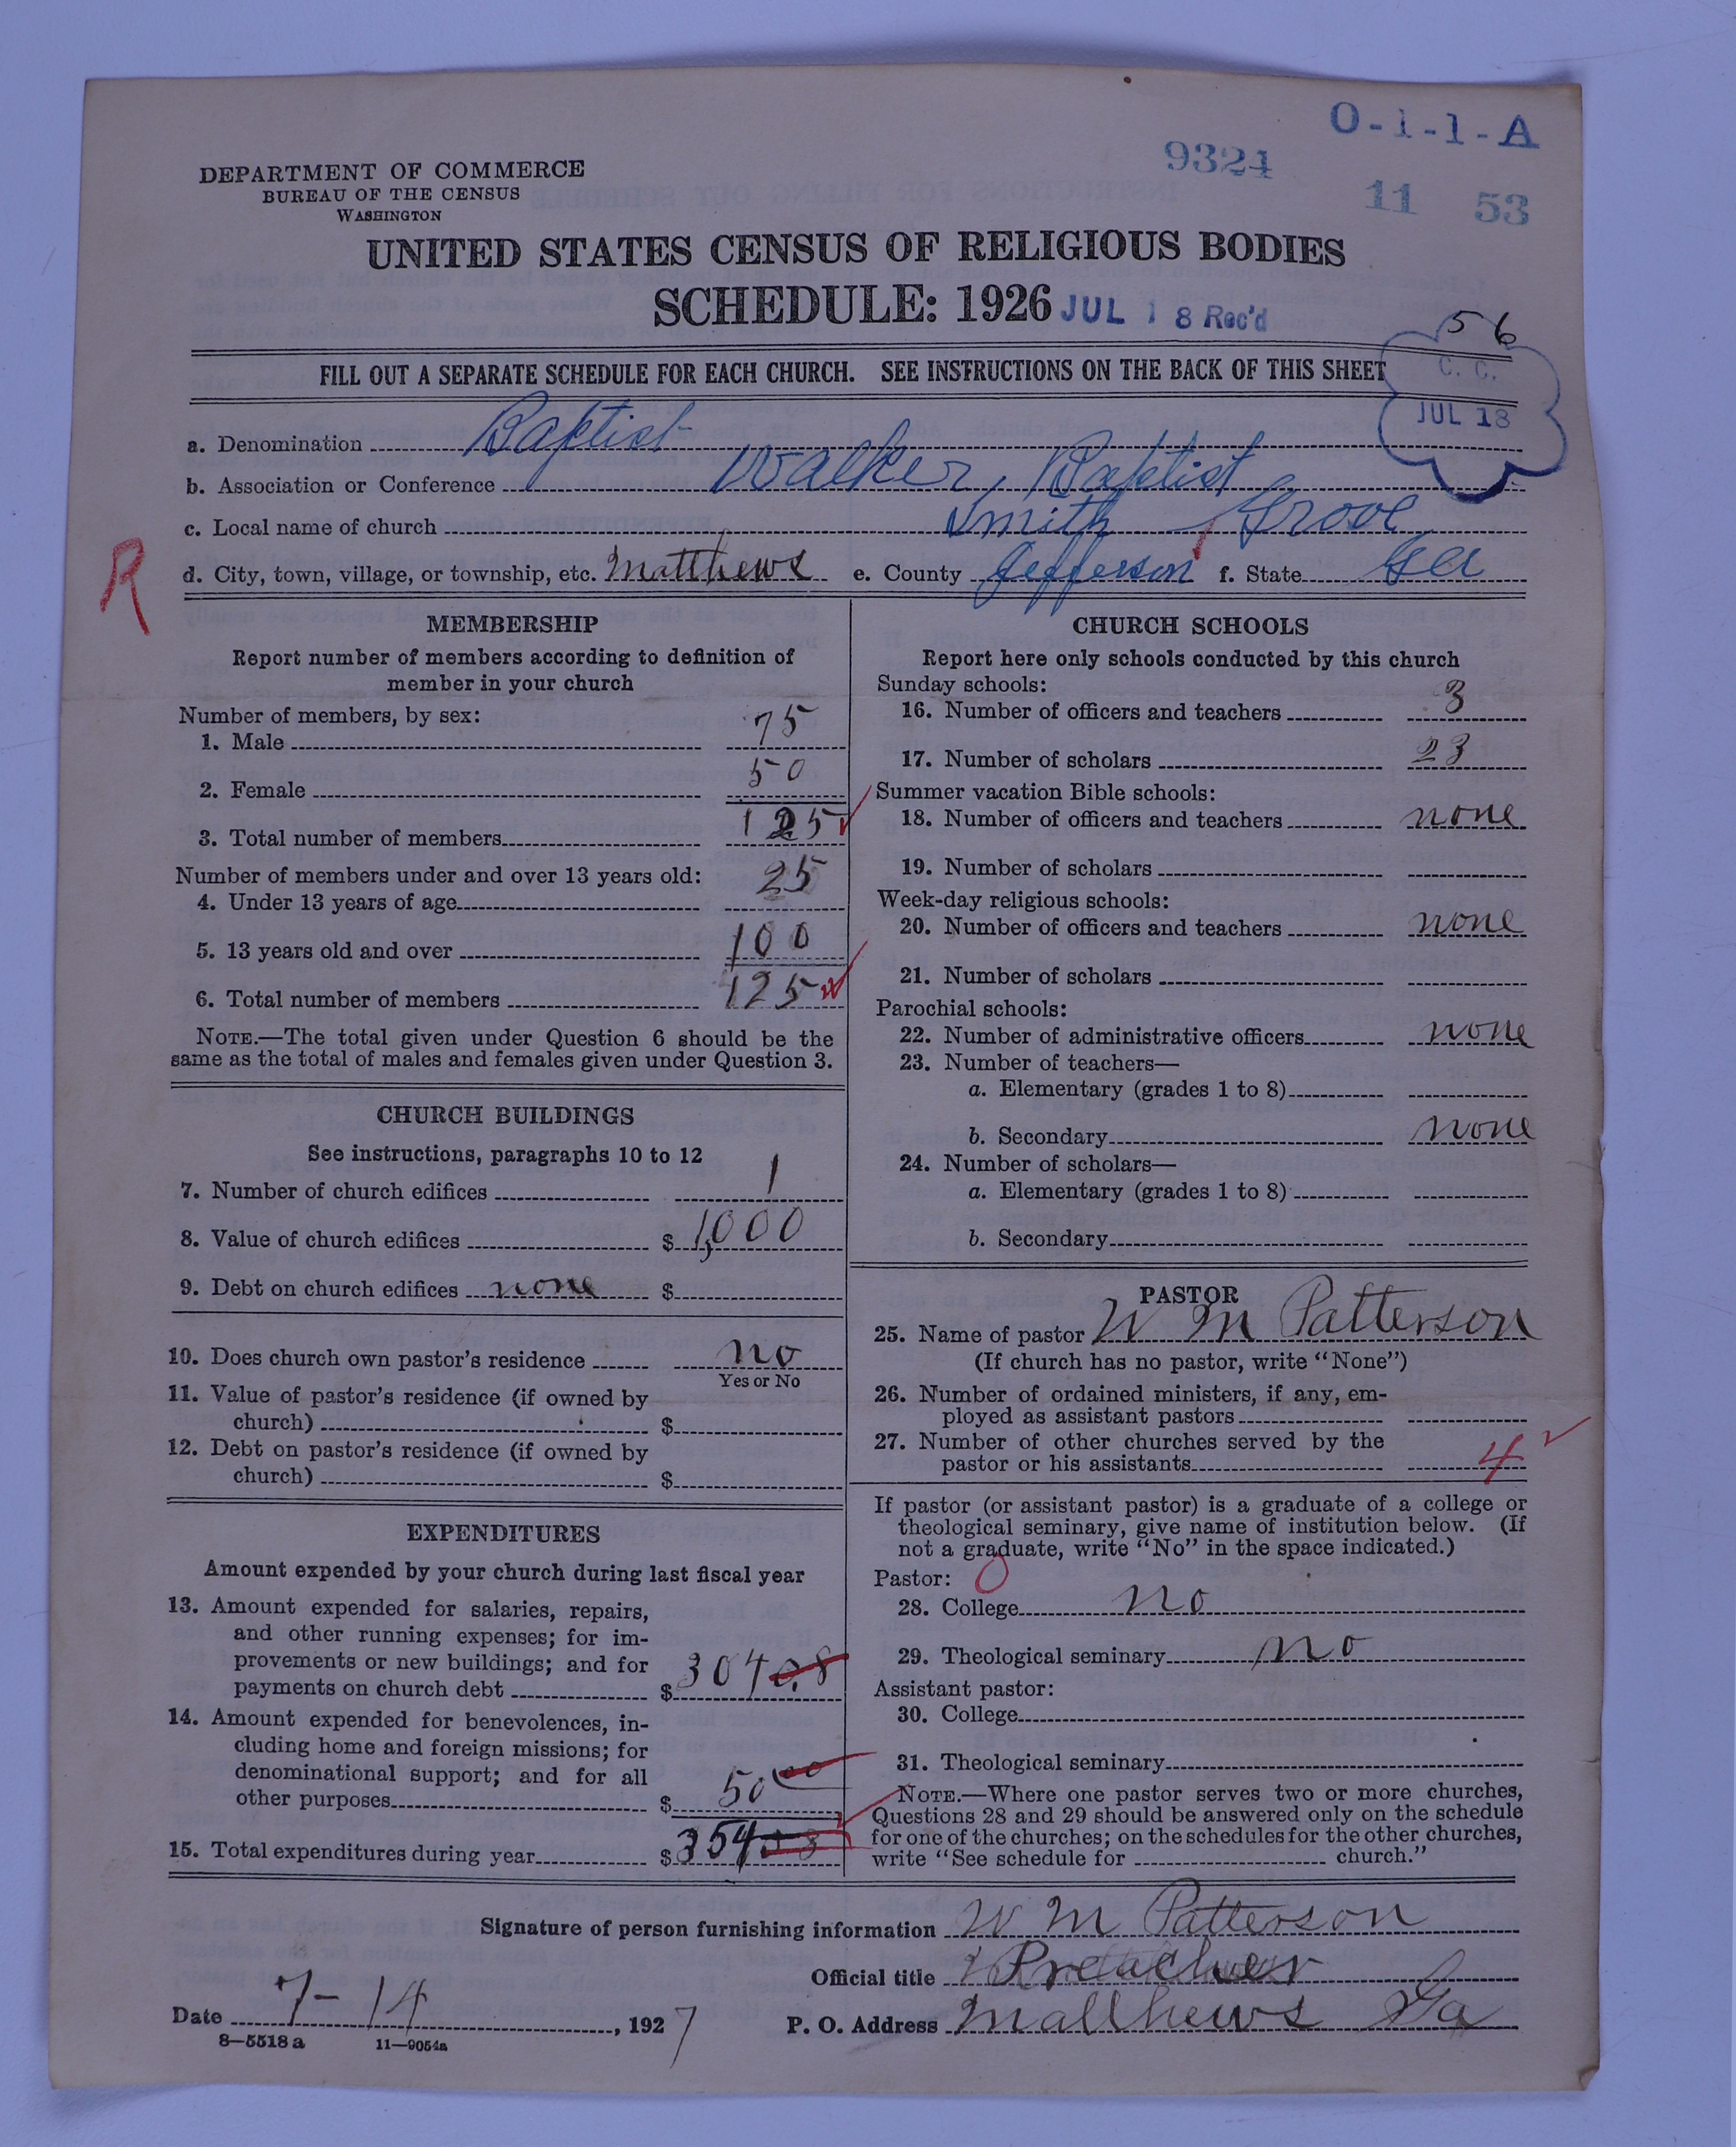 O-1-1-A
9324
11 53
DEPARTMENT OF COMMERCE
BUREAU OF THE CENSUS
WASHINGTON
UNITED STATES CENSUS OF RELIGIOUS BODIES
SCHEDULE: 1926 JUL 18 Rec'd
56
FILL OUT A SEPARATE SCHEDULE FOR EACH CHURCH. SEE INSTRUCTIONS ON THE BACK OF THIS SHEET
C. C.
JUL 18
a. Denomination Baptist
b. Association or Conference Walker, Baptist
c. Local name of church Smith Grove
R
d. City, town, village, or township, etc. Matthews e. County Jefferson f. State Ga
MEMBERSHIP
Report number of members according to definition of
member in your church
Number of members, by sex:
1. Male 75
2. Female 50
3. Total number of members 125
Number of members under and over 13 years old:
4. Under 13 years of age 25
5. 13 years old and over 100
6. Total number of members 125
NOTE.—The total given under Question 6 should be the
same as the total of males and females given under Question 3.
CHURCH BUILDINGS
See instructions, paragraphs 10 to 12
7. Number of church edifices 1
8. Value of church edifices $ 1,000
9. Debt on church edifices none $
10. Does church own pastor's residence no
Yes or No
11. Value of pastor's residence (if owned by
church) $
12. Debt on pastor's residence (if owned by
church) $
EXPENDITURES
Amount expended by your church during last fiscal year
13. Amount expended for salaries, repairs,
and other running expenses; for im-
provements or new buildings; and for
payments on church debt $ 304.08
14. Amount expended for benevolences, in-
cluding home and foreign missions; for
denominational support; and for all
other purposes $ 50 00
15. Total expenditures during year $ 354 08
CHURCH SCHOOLS
Report here only schools conducted by this church
Sunday schools:
16. Number of officers and teachers 3
17. Number of scholars 23
Summer vacation Bible schools:
18. Number of officers and teachers none
19. Number of scholars
Week-day religious schools:
20. Number of officers and teachers none
21. Number of scholars
Parochial schools:
22. Number of administrative officers none
23. Number of teachers—
a. Elementary (grades 1 to 8)
b. Secondary none
24. Number of scholars—
a. Elementary (grades 1 to 8)
b. Secondary
PASTOR
25. Name of pastor W M Patterson
(If church has no pastor, write "None")
26. Number of ordained ministers, if any, em-
ployed as assistant pastors
27. Number of other churches served by the
pastor or his assistants 4
If pastor (or assistant pastor) is a graduate of a college or
theological seminary, give name of institution below. (If
not a graduate, write "No" in the space indicated.)
Pastor: 0
28. College no
29. Theological seminary no
Assistant pastor:
30. College
31. Theological seminary
NOTE.—Where one pastor serves two or more churches,
Questions 28 and 29 should be answered only on the schedule
for one of the churches; on the schedules for the other churches,
write "See schedule for church."
Signature of person furnishing information W M Patterson
Official title Preacher
Date 7-14, 1927 P. O. Address Matthews Ga
8—5518 a 11—9054a